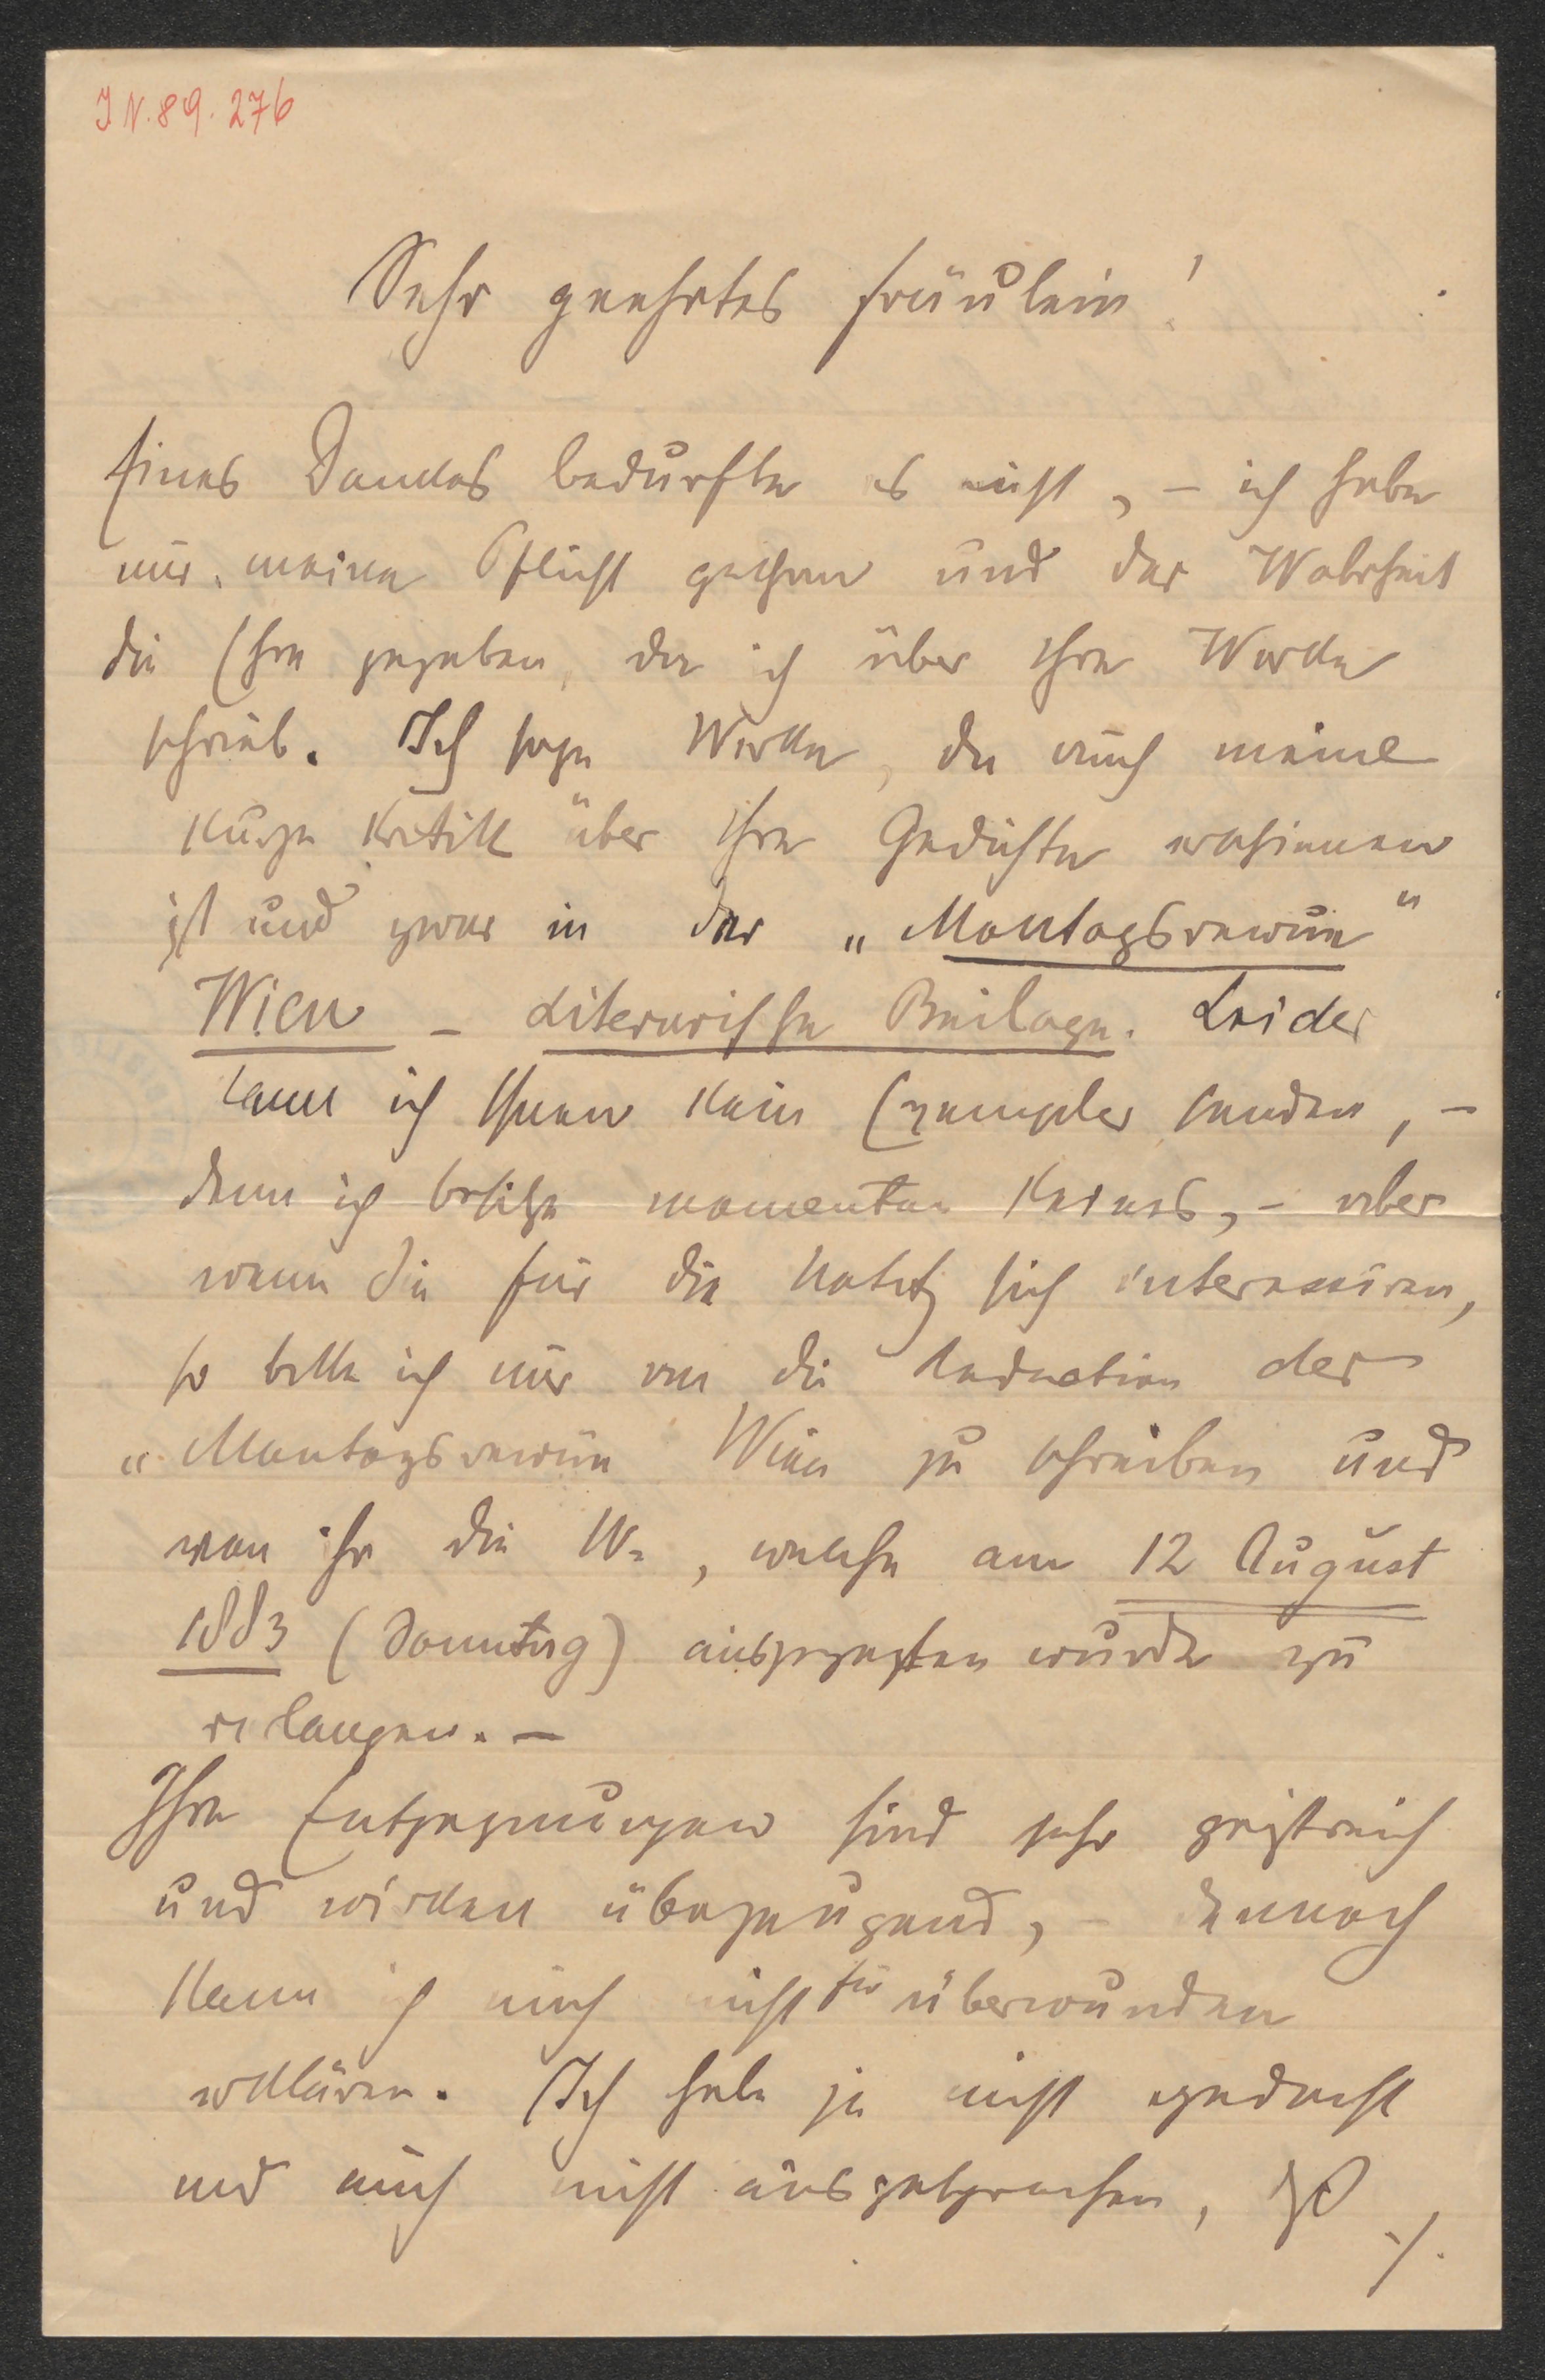 I N. 89. 276
Sehr geehrtes Fräulein!
Eines Dankes bedurfte es nicht, – ich habe
nur meine Pflicht gethan und der Wahrheit
die Ehre gegeben, da ich über Ihre Werke
schrieb. Ich sage Werke, da auch meine
kurze Kritik über Ihre Gedichte erschienen
ist und zwar in der „Montagsrevue“
Wien – Literarische Beilage. Leider
kann ich Ihnen kein Exemplar senden, –
denn ich besitze momentan keines, – aber
wenn Sie für die Notitz sich interessiren,
so bitte ich nur an die Redaction der
„Montagsrevue Wien zu schreiben und
von ihr die Nr, welche am 12 August
1883 (Sonntag) ausgegeben wurde zu
verlangen. –
Ihre Entgegnungen sind sehr geistreich
und wirken überzeugend, – dennoch
kann ich mich nicht für überwunden
erklären. Ich habe ja nicht gedacht
und auch nicht ausgesprochen, dß
./.